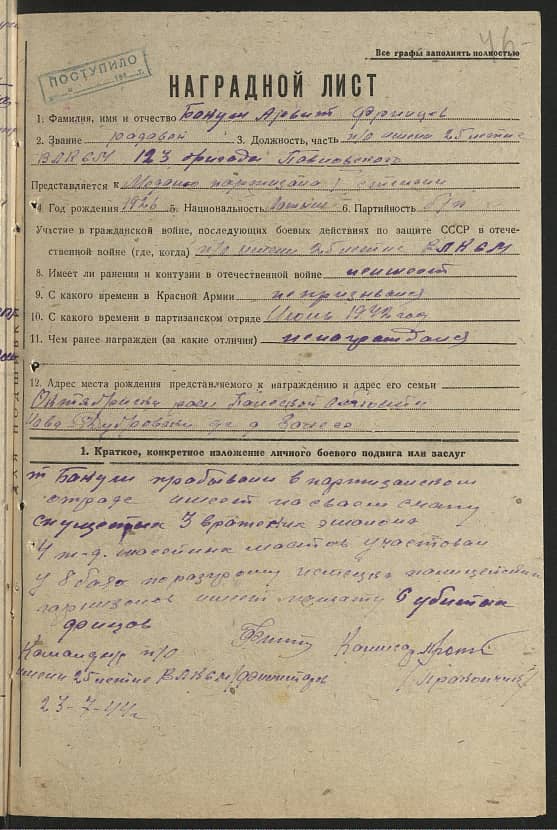 46
Все графы заполнять полностью
ПОСТУПИЛО
НАГРАДНОЙ ЛИСТ
1. Фамилия, имя и отчество Бакули Арвит
2. Звание радавой 3. Должность, часть п/о имени 25 летие
ВЛКСМ 123 бригады
Представляется к Медалю партизана I степени
4 Год рождения 1926 5. Национальность Латыш 6. Партийность б/п
Участие в гражданской войне, последующих боевых действиях по защите СССР в отече-
ственной войне (где, когда) п/о имени 25 летие ВЛКСМ
8. Имеет ли ранения и контузии в отечественной войне неимеет
9. С какого времени в Красной Армии непризывался
10. С какого времени в партизанском отряде Июнь 1942 год
11. Чем ранее награжден (за какие отличия) ненаграждался
12. Адрес места рождения представляемого к награждению и адрес его семьи
Октябрьски раен области
д.
ДЛЯ ПОДШИВКИ
1. Краткое, конкретное изложение личного боевого подвига или заслуг
т Бакули прабывали в партизанском
отраде имеет на сваем счету
спущетых 3 вражеских эшалона
4 мастов участвовал
у 8 баях по разгрому немецка палицейских
гарнизонов имеет убитых
фрицов
Командир п/о Комисар
имени 25 летие ВЛКСМ
23-7-44 г